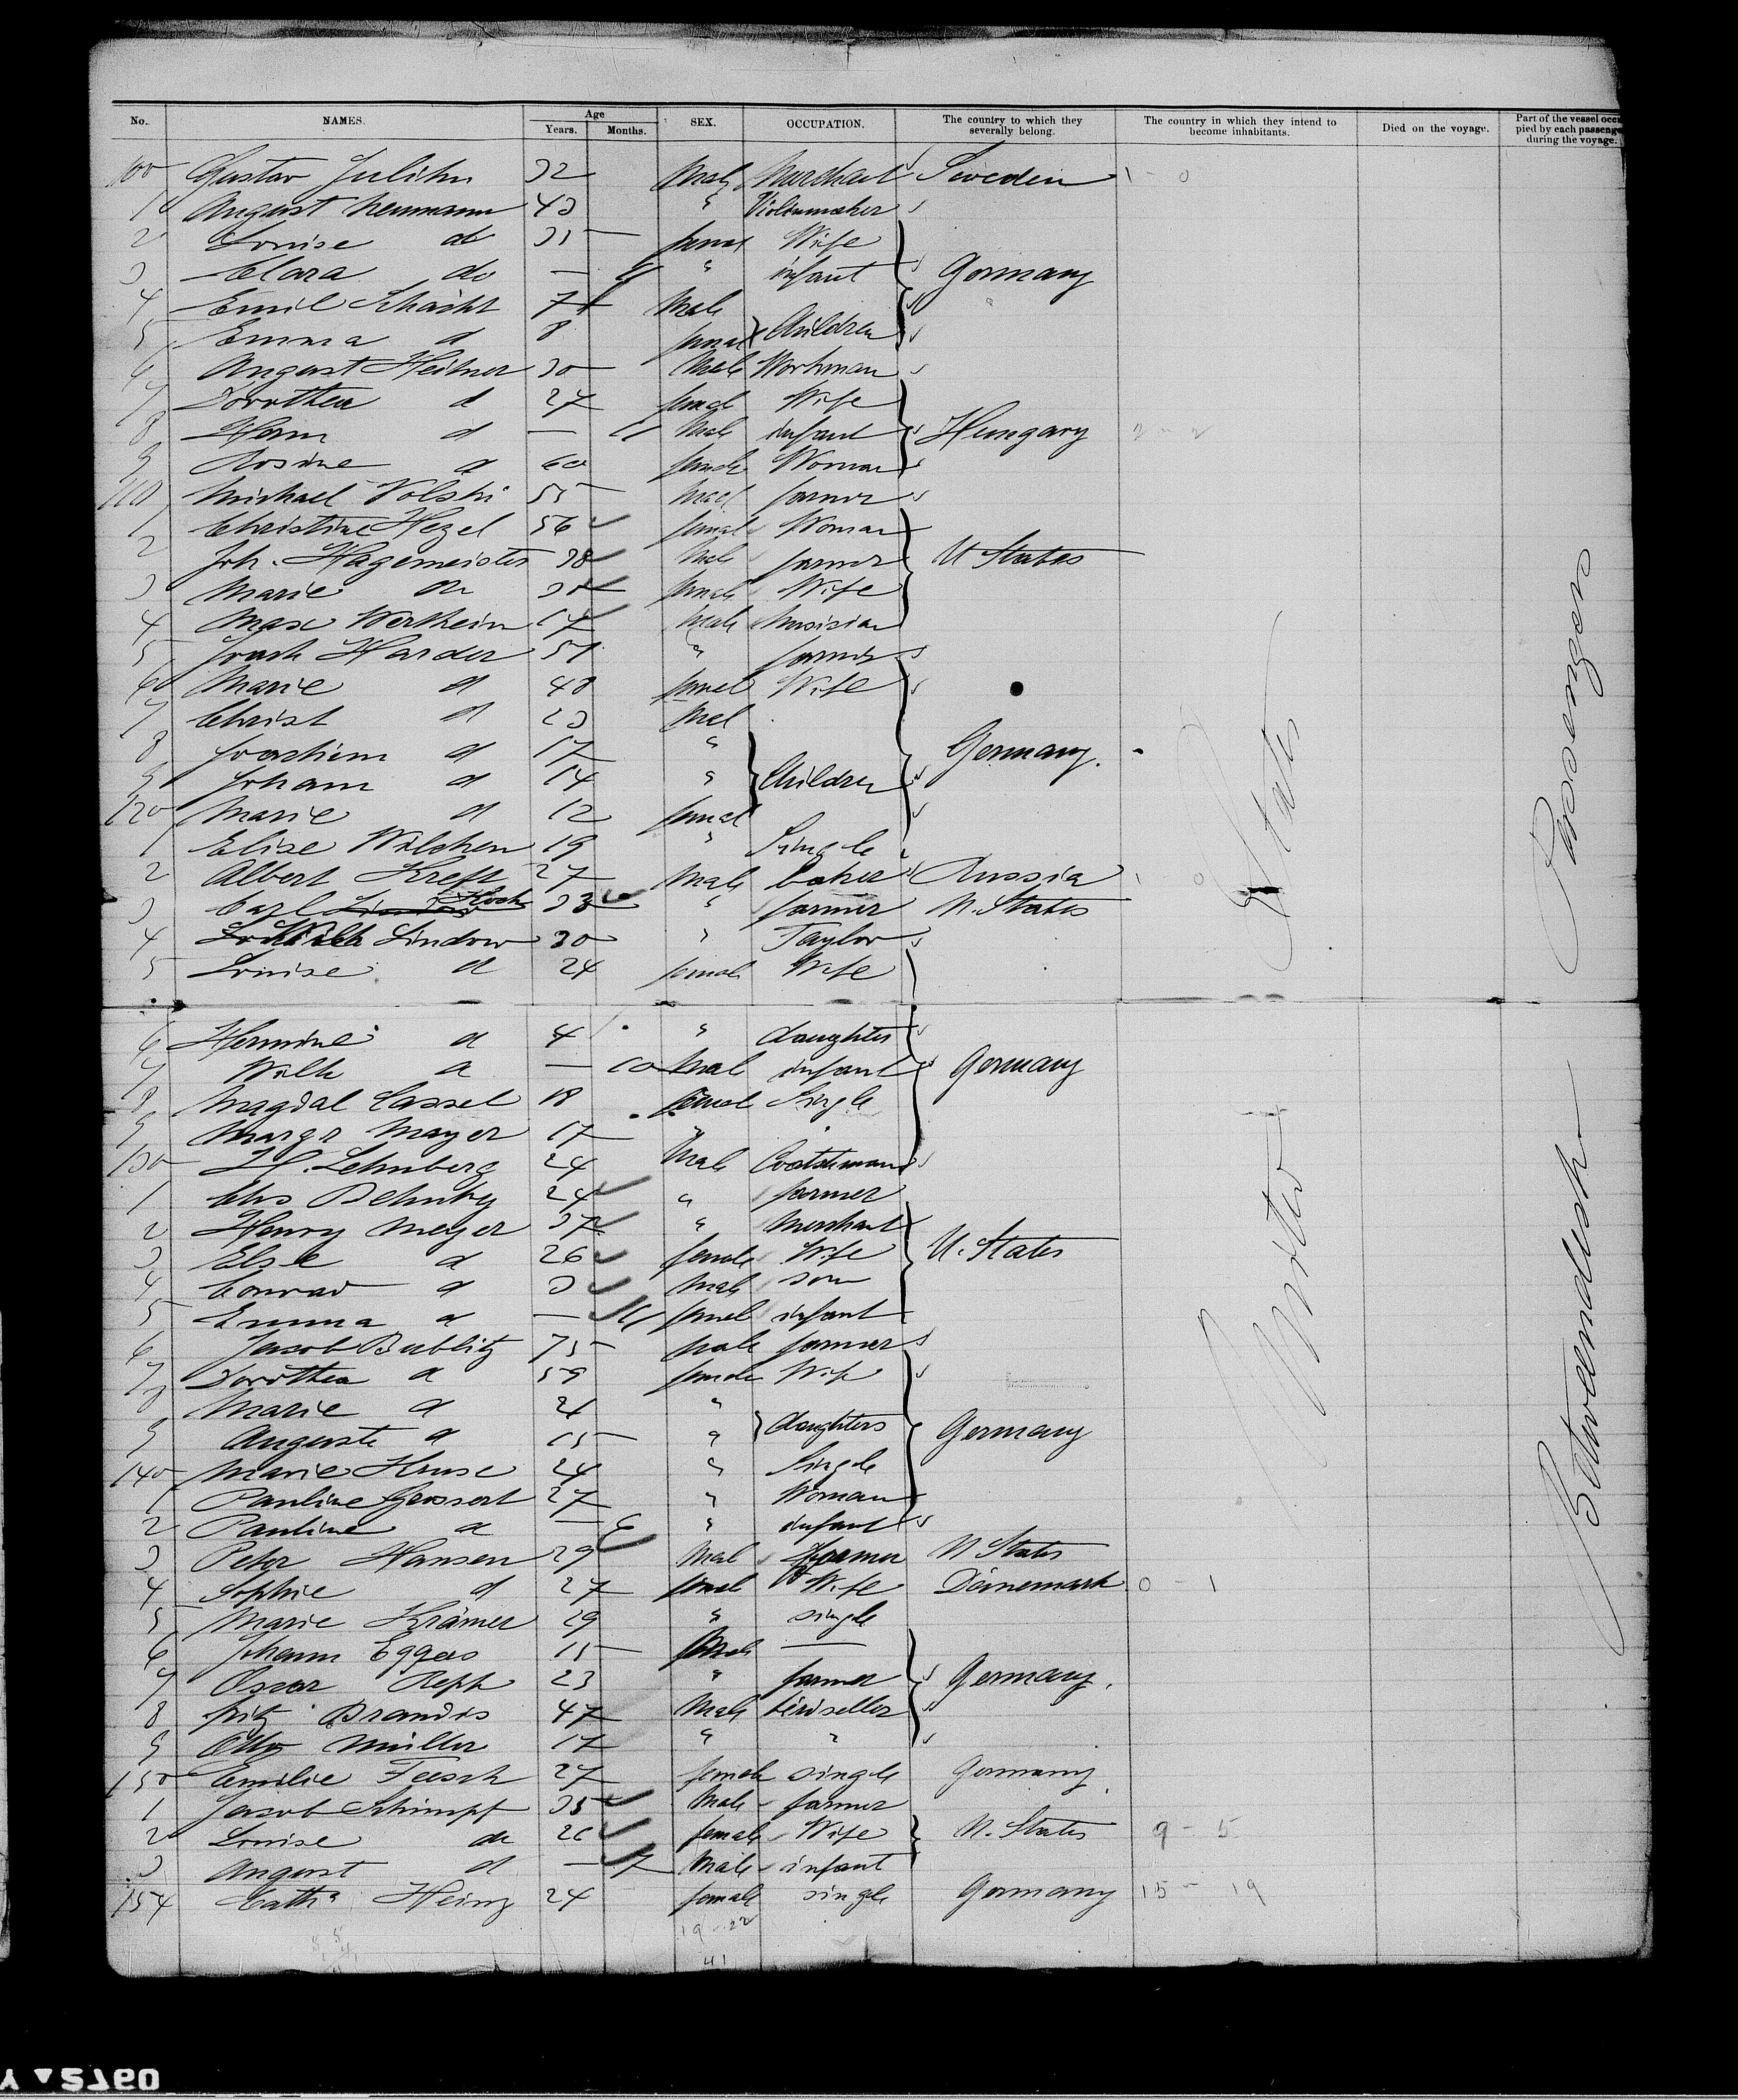 No. NAMES. Age Years. Months. SEX. OCCUPATION. The country to which they severally belong. The country in which they intend to become inhabitants. Died on the voyage. Part of the vessel occupied by each passenger during the voyage.
100 Gustav Julihn 32 Male Merchant Sweden 1 - 0
1 August Neumann 43 " Violinmaker
2 Louise do 35 femal Wife
3 Clara do — 11 " infant Germany
4 Emil Schacht 7 Male
5 Emma d 8 femal Children
6 August Heitner 30 Male Workman
7 Dorothea d 27 femal Wife
8 Herm d — 11 Male infant Hungary 2 - 2
9 Rosine d 60 female Woman
110 Michael Volski 55 Mael farmer
1 Christine Hezel 56 femal Woman
2 Joh. Hagemeister 38 Male farmer U States
3 Marie do 35 female Wife
4 Max Wertheim 17 Male Musician
5 Joach Harder 51 " farmer
6 Marie d 48 femel Wife
7 Christ d 23 Mal
8 Joachim d 17 " Germany.
9 Johann d 14 " Children
120 Marie d 12 femal
1 Elise Wilchen 19 " Single
2 Albert Kreft 27 Male baker Russia 1 0
3 Carl Koch 33 " farmer U. States
4 Wilh Lindow 30 " Taylor
5 Louise d 24 female Wife
6 Hermine d 4 " daughter
7 Wilh d — 10 Male infant Germany
8 Magdal Cassel 18 femel Single
9 Margr Mayer 17 "
130 H. Lehnberg 24 Male
1 Chs 24 " farmer
2 Henry Meyer 37 " Merchant
3 Else d 26 female Wife U. States
4 Conrad d 3 Male son
5 Emma d — 11 femel infant
6 Jacob Bublitz 75 male farmer
7 Dorothea d 59 female Wife
8 Marie d 21 "
9 Auguste d 15 " daughters Germany
140 Marie Kruse 24 " Single
1 Pauline 27 " Woman
2 Pauline d — 6 " infant
3 Peter Hansen 29 Mal farmer U States
4 Sophie d 27 femal Wife Dänemark 0 - 1
5 Marie Krämer 29 " single
6 Johann Eggers 15 Male —
7 Oscar Reph 23 " farmer Germany.
8 Fritz Brandis 47 Male birdseller
9 Otto Müller 17 " "
150 Emilie Feesch 27 female single Germany
1 Jacob Schimpf 35 Male farmer
2 Louise do 26 female Wife U. States 9 - 5
3 August d — 7 Male infant
154 Cath. Heinz 24 female single Germany 15 - 19
19 - 22
41
United States
Betweendeck Passengers